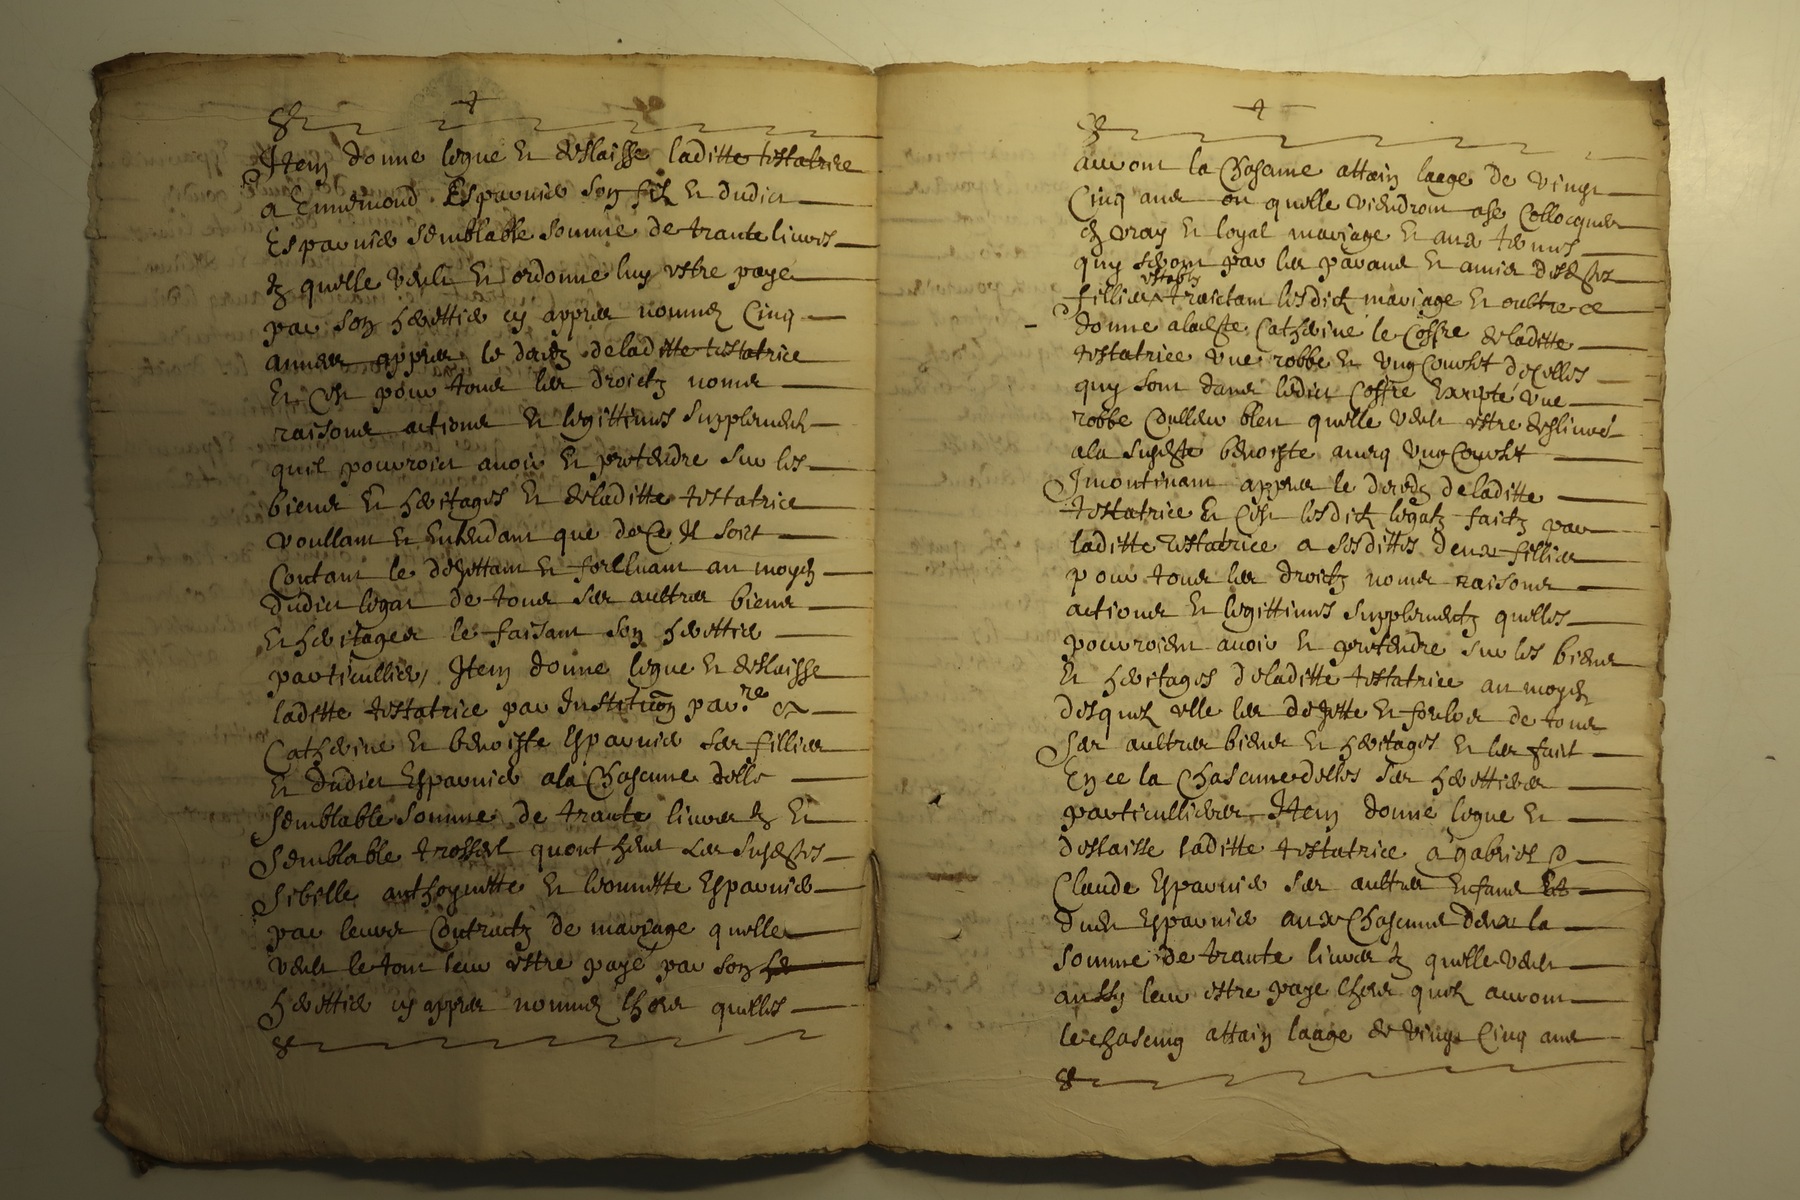 Item donne legue et deslaisse laditte testatrice
a Ennemond Esparnier son filz et dudict
Esparnier semblable somme de trante livres
tz quelle veult et ordonne luy estre payé
par son herettier cy appres nommé Cinq
annees appres le decedz de laditte testatrice
Et Cest pour tous les droictz noms
raisons actions et legittimes supplement
quil pourroict avoir et prethendre sur les
biens et heritages et de laditte testatrice
voullant et Entendant que de Ce Il soict
Contant le dejettant et forcluant au moyen
dudict legat de tous ses aultres biens
et heritages le faisant son herettier
particullier, Item donne legue et deslaisse
laditte testatrice par Instituon par.re a
Catherine et benoiste Esparnier ses filles
et dudict Esparnier a la Chascune delle
Semblable Somme de trante livres tz Et
Semblable trossel quont heus Les Susdittes
Sibille anthoynette et leonnette Esparnier
par leurs Contractz de mariage quelle
veult le tout leur estre payé par son he
herettier cy appres nommé lhors quelles
auront la Chascune attain laage de vingt
Cinq ans ou quelle viendront a se Collocquer
En vray et loyal mariage Et aux termes
quy seront par les parans et amies desdittes
estably
filles traictant lesdict mariage Et oultre ce
donne a laditte Catherine le Coffre de laditte
testatrice une robbe et ung Couvert de Celles
quy sont dans ledict Coffre Excepté une
robbe Culleur bleu quelle veult estre deslivré
a la Susditte benoiste avecq ung Couvert
Incontinant appres le decedz de laditte
testatrice Et Cest lesdict legatz faictz par
laditte testatrice a sesdittes deux filles
pour tous les droictz noms raisons
actions et legittimes supplementz quelles
pourroient avoir et prethendre sur les biens
Et heritages de laditte testatrice au moyen
desquelz elle les dejette et forclos de tous
Ses aultres biens et heritages et les faict
En ce la Chascune delles ses herettieres
particullieres Item donne legue et
deslaisse laditte testatrice a gabriel &
Claude Esparnier ses aultres Enfans
dudit Esparnier aux Chascung deux la
somme de trante livres tz quelle veult
aussy leur estre payé lhors quilz auront
le chascung attain laage de vingt Cinq ans